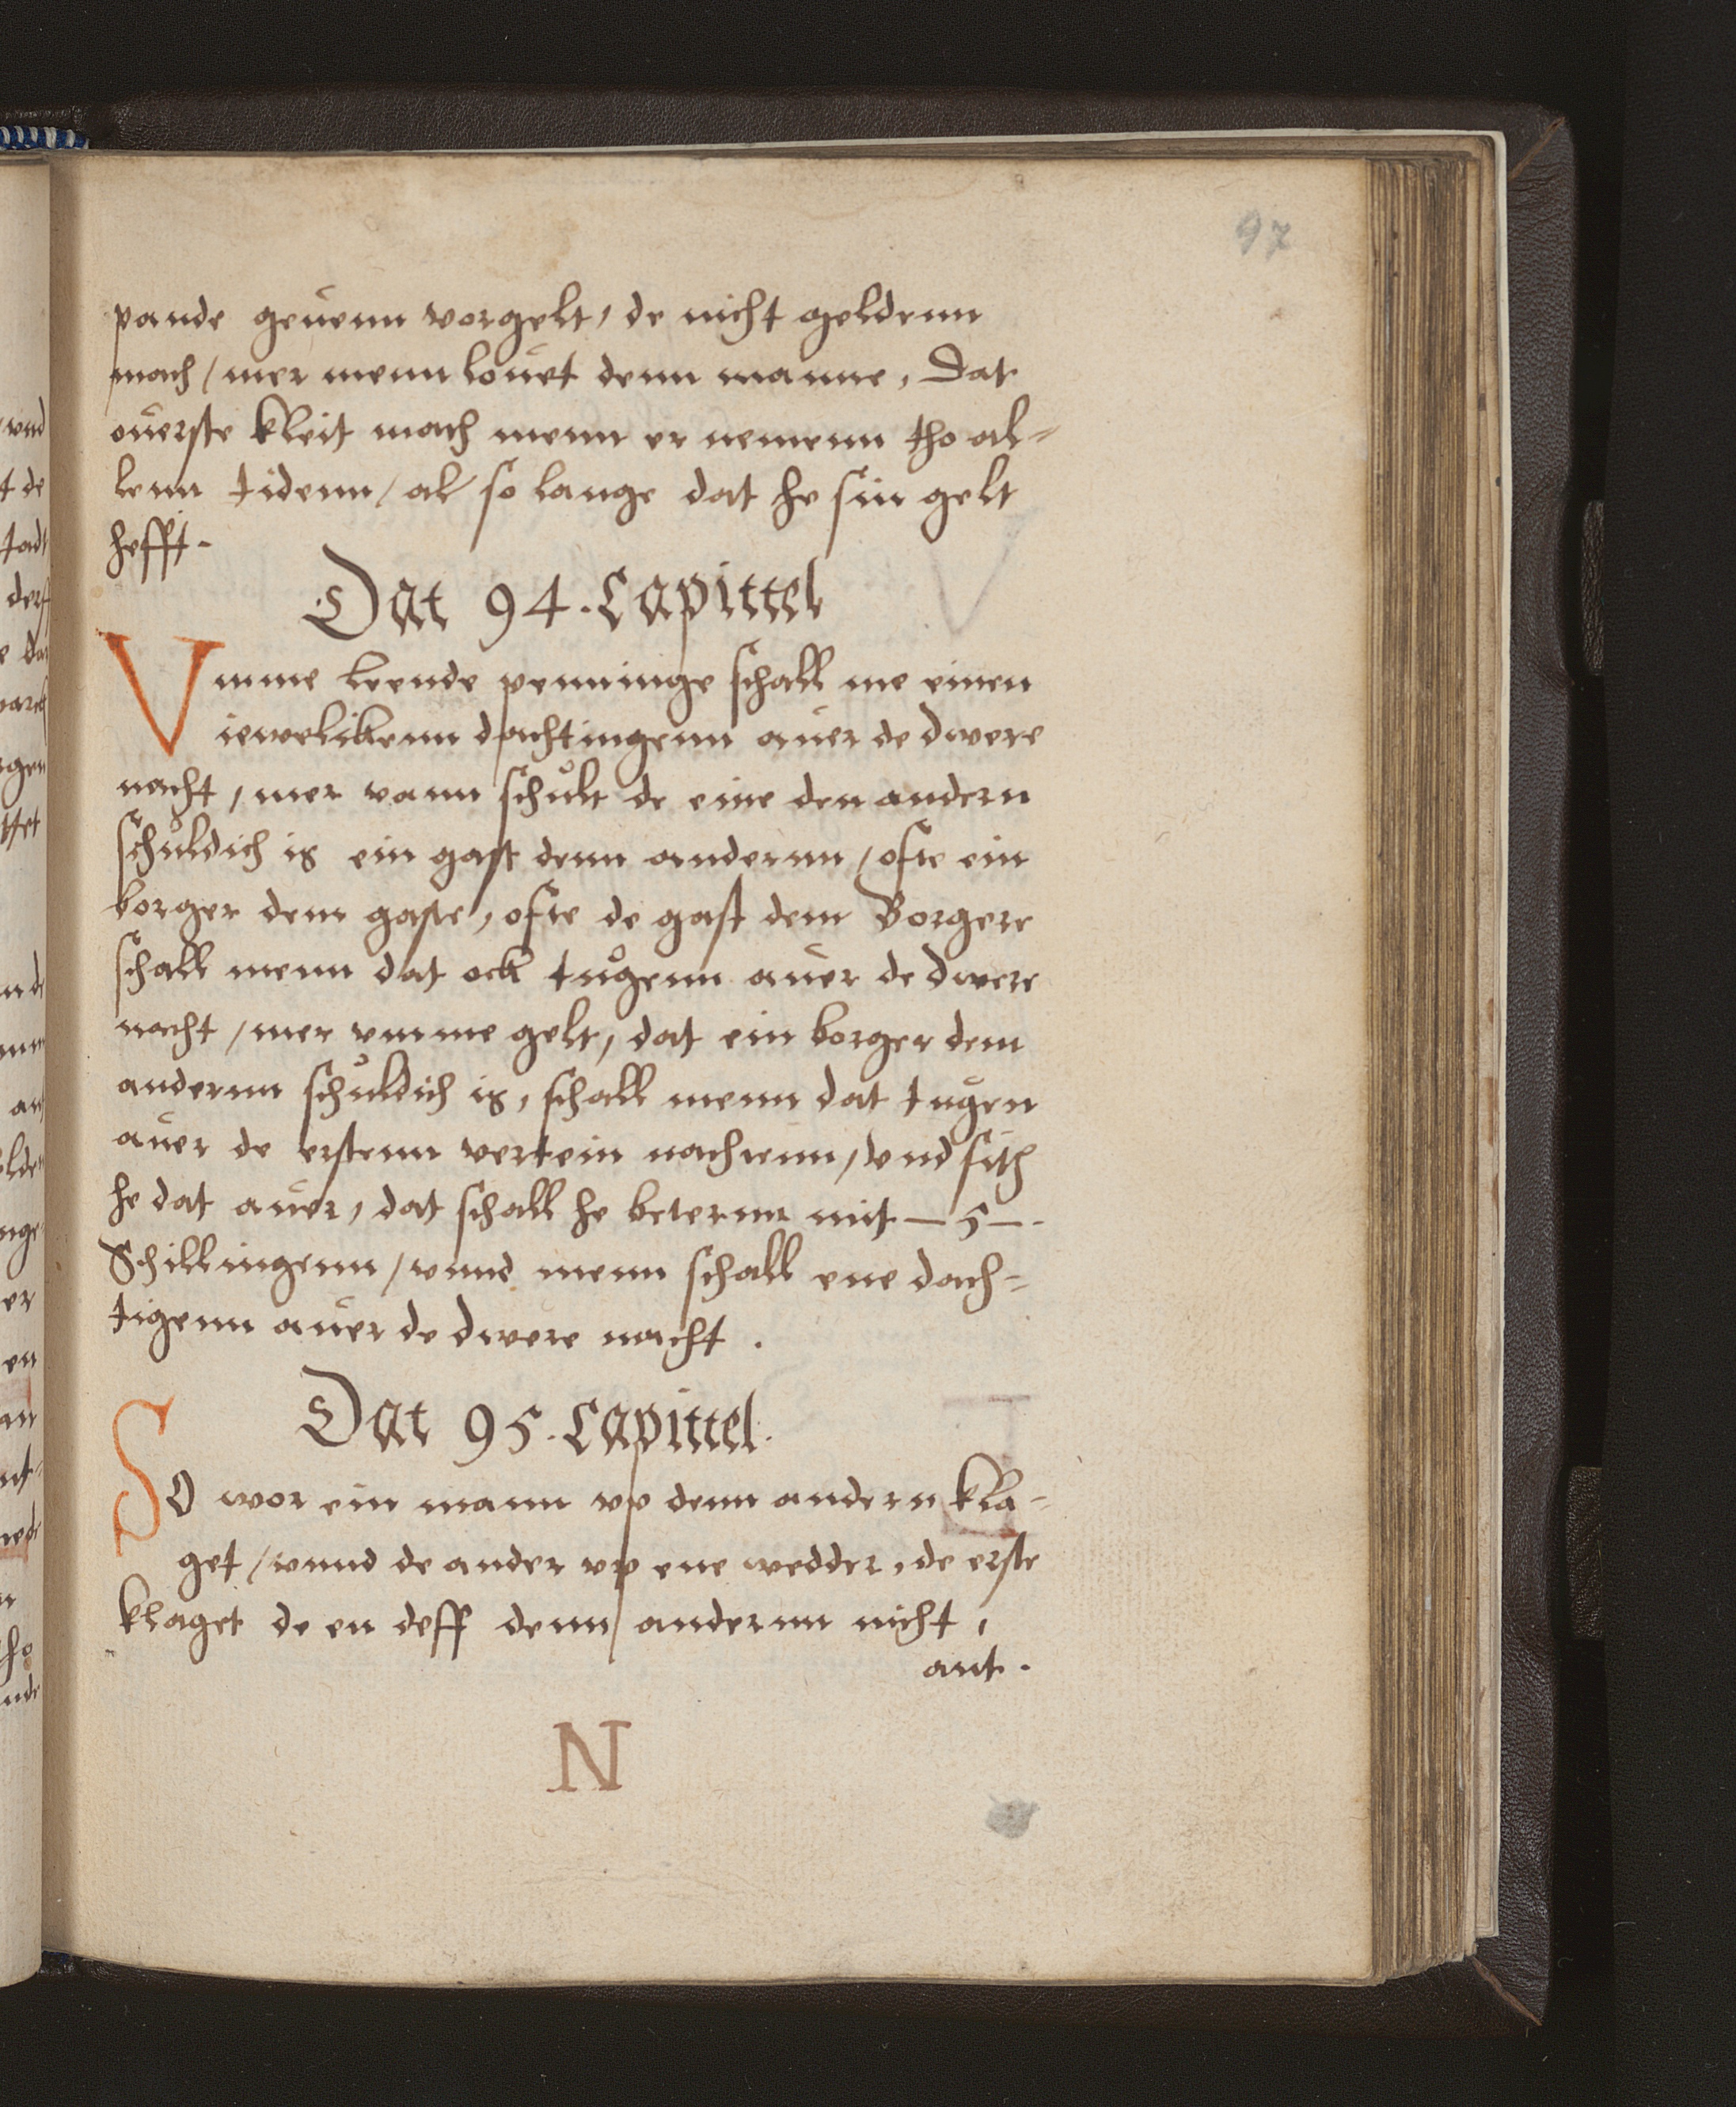 97
pande geuenn vorgelt, de nicht geldenn
mach / mer menn louet denn manne, Dat
ouerste kleit mach menn er nemenn tho al=
lenn tidenn / al so lange dat he sin gelt
hefft.
Dat 94. Capittel
Vmme leende penninge schall me einen
iewelikenn dachtingenn auer de dwere
nacht, mer vann schult de eine den andern
schuldich is ein gast denn andernn / ofte ein
borger dem gaste, ofte de gast dem Borgere
schall menn dat ock tugenn auer de dwere
nacht / mer vmme gelt, dat ein borger dem
andernn schuldich is, schall menn dat tugen
auer de erstenn vertein nachtenn, vnd sith
he dat auer, dat schall he beternn mit — 5 —.
Schillingenn / vnnd menn schall ene dach=
tigenn auer de dwere nacht.
Dat 95. Capittel.
SO wor ein mann vp denn andern kla=
get / vnnd de ander vp ene wedder, de erste
klaget de en deff denn andernn nicht,
ant.
N